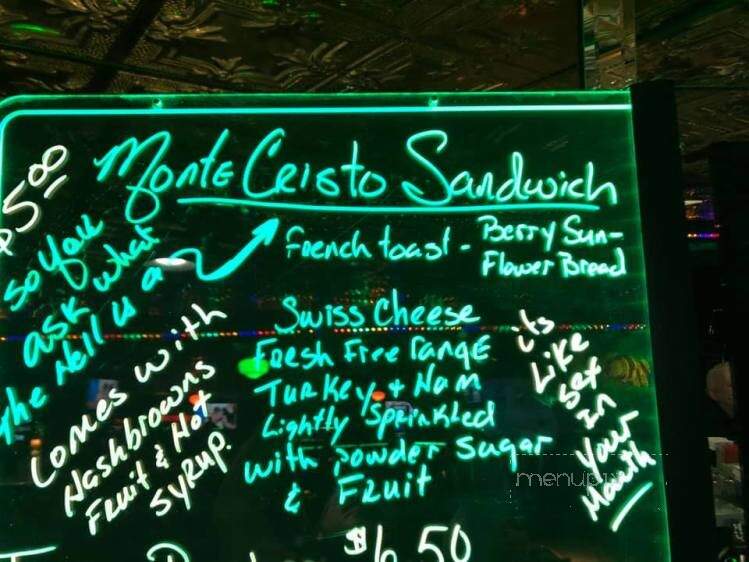 Monte Cristo Sandwich
$5.00
So you
ask what
the Hell is a
French toast - Berry Sun-
Flower Bread
Swiss Cheese
Fresh Free range
Turkey + Ham
Lightly Sprinkled
with powder sugar
& Fruit
Comes with
Hashbrowns
Fruit & Hot
Syrup.
its
Like
Sex
In
Your
Mouth
$6.50
menupix